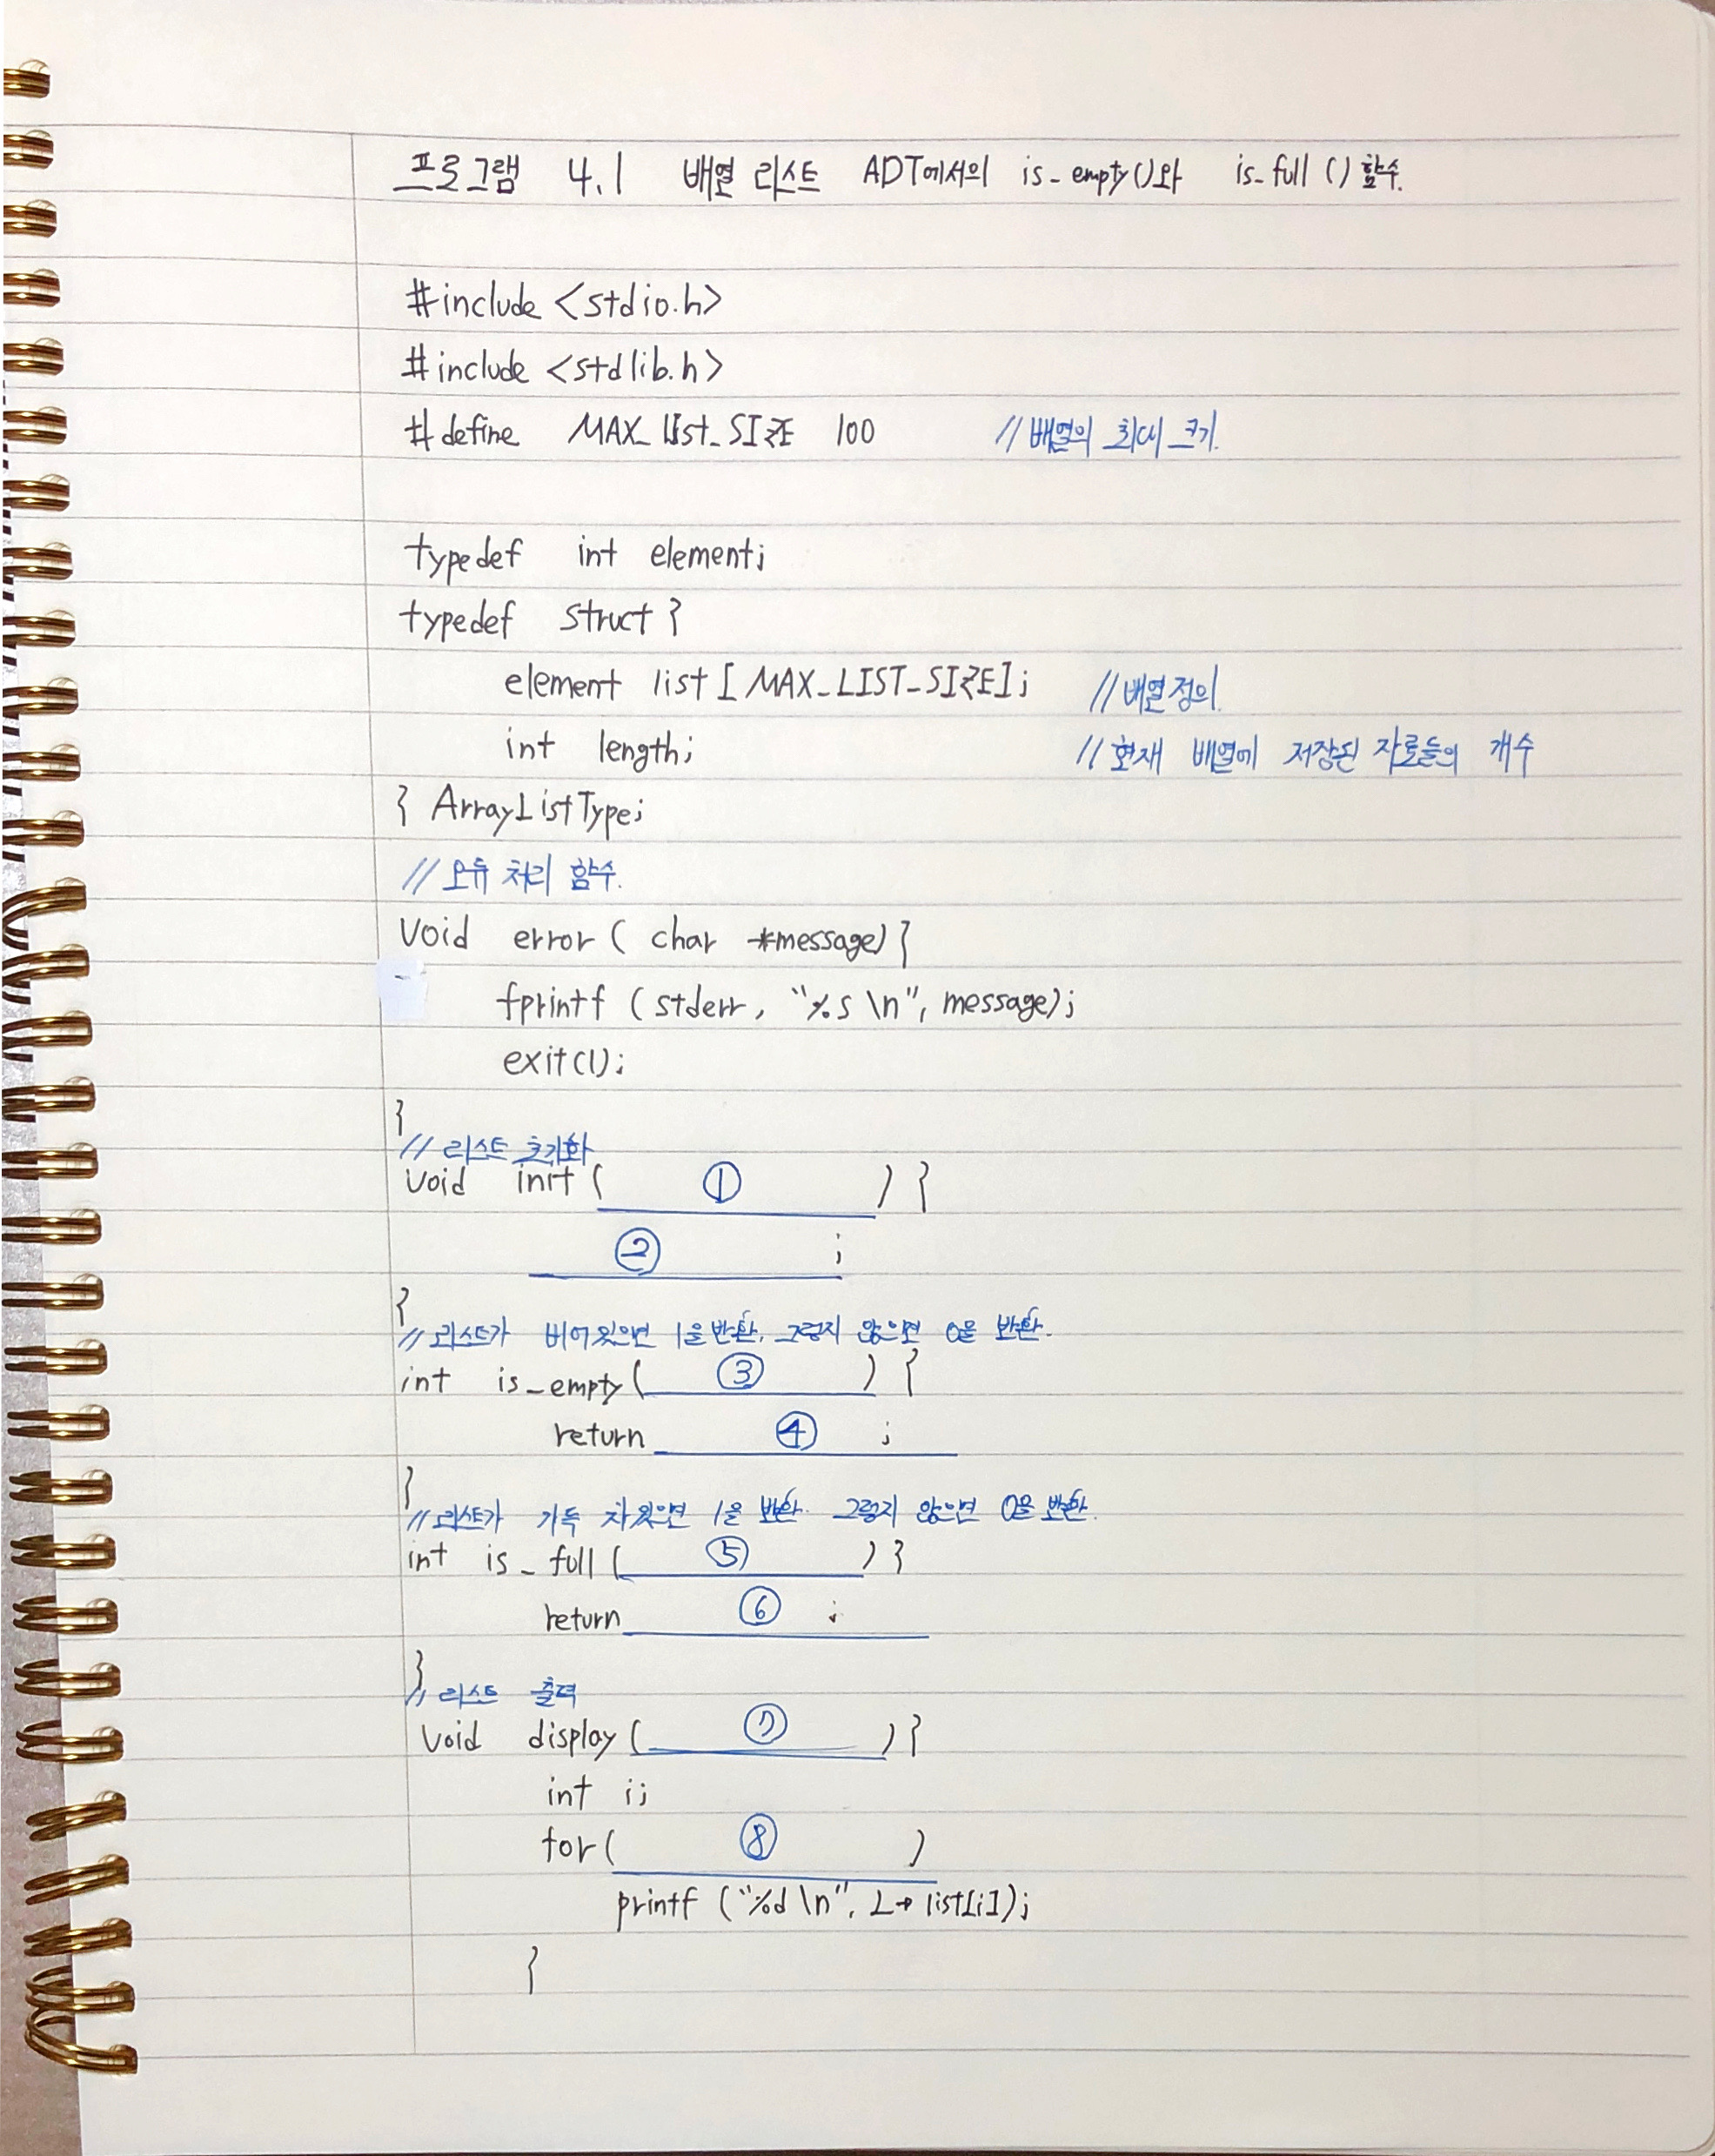 프로그램 4.1 배열 리스트 ADT에서의 is_empty()와 is_full () 함수.
#include <stdio.h>
#include <stdlib.h>
#define MAX_LIST_SIZE 100 //배열의 최대 크기.
typedef int element;
typedef struct {
element list [MAX_LIST_SIZE]; //배열정의.
int length; //현재 배열에 저장된 자료들의 개수
} ArrayListType;
//오류 처리 함수.
void error ( char *message) {
fprintf (stderr, "%s \n", message);
exit(1);
}
// 리스트 초기화
void init ( ① ) {
② ;
}
//리스트가 비어있으면 1을 반환. 그렇지 않으면 0을 반환.
int is_empty( ③ ) {
return ④ ;
}
//리스트가 가득 차있으면 1을 반환. 그렇지 않으면 0을 반환.
int is_full ( ⑤ ) {
return ⑥ ;
}
// 리스트 출력
void display ( ⑦ ) {
int i;
for ( ⑧ )
printf ("%d \n", L→list[i]);
}